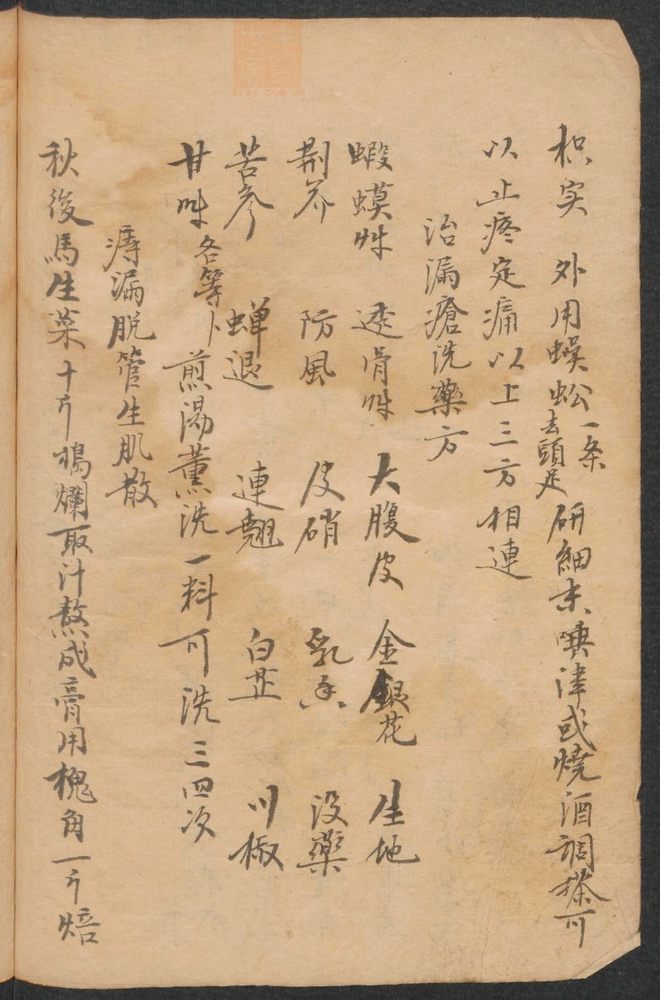 枳实　外用蜈蚣一条去頭足研細末唾津或燒酒調搽可
以止疼定痛以上三方相連
治漏瘡洗藥方
蝦蟆艸　透骨艸　大腹皮　金銀花　生地
荆芥　防風　皮硝　乳香　没藥
苦參　蟬退　連翹　白芷　川椒
甘艸　各等卜煎湯薰洗一料可洗三四次
痔漏脱管生肌散
秋後馬生菜十斤搗爛取汁熬成膏用槐角一斤焙